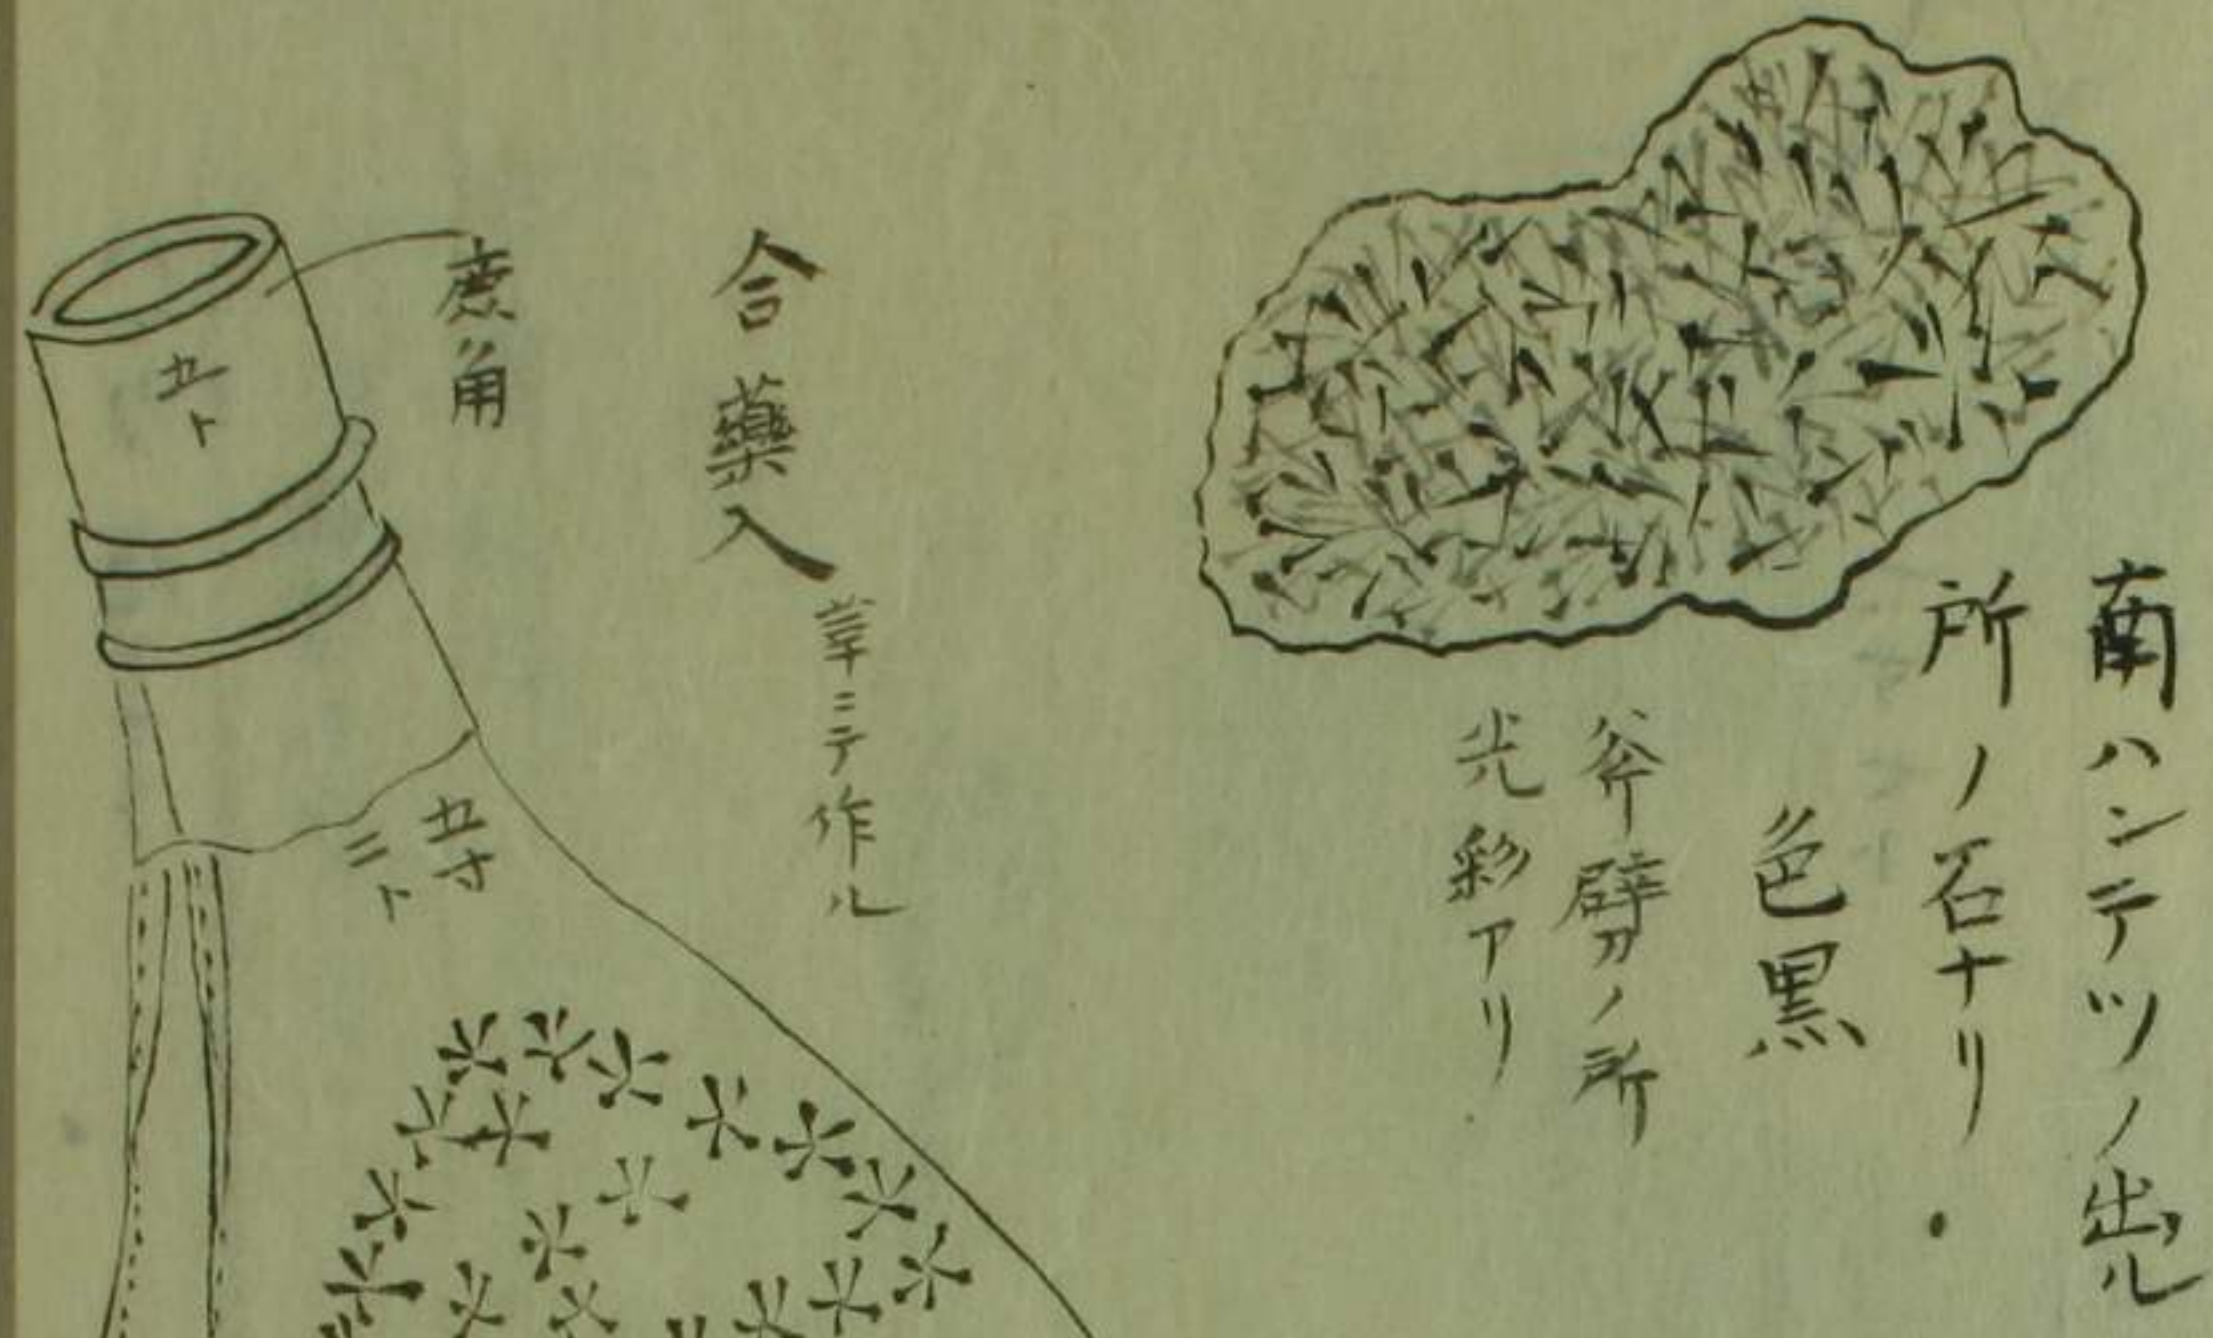 南ハンテツノ出ル
所ノ石ナリ
色黒
斧劈ノ所
光彩アリ
合藥入
革ニテ作ル
鹿ノ角
五寸
二ト
五ト